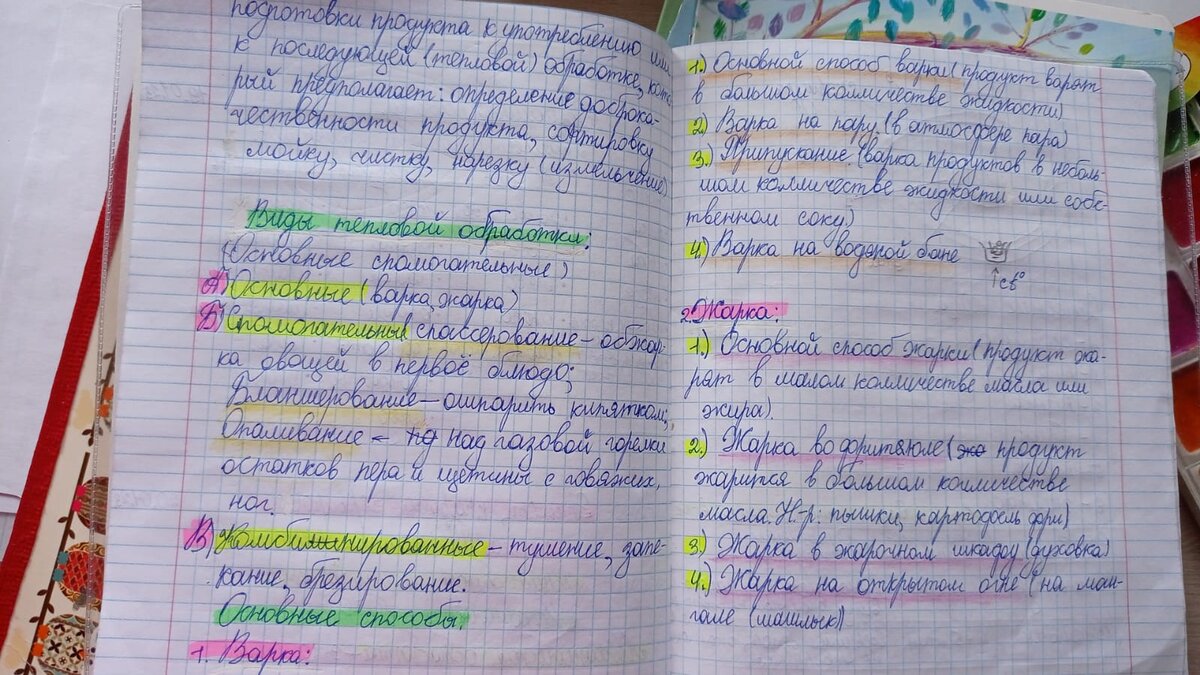 подготовки продукта к употреблению или
к последующей (тепловой) обработке, кото
рый предполагает: определение доброка-
чественности продукта, сортировку
мойку, чистку, нарезку (измельчение)
Виды тепловой обработки:
(Основные спомогательные)
А) Основные (варка, жарка)
Б) Спомогательный спассерование - обжар-
ка овощей в первое блюдо;
Бланшерование - ошпарить кипятком;
Опаливание - над газовой горелки
остатков пера и щетины с говяжих,
ног.
В) Комбинированные - тушение, запе-
кание, брезирование.
Основные способы:
1. Варка:
1.) Основной способ варки (продукт варят
в большом колличестве жидкости)
2) Варка на пару. (в атмосфере пара)
3.) Припускание (варка продуктов в неболь-
шом колличестве жидкости или собс-
твенном соку.)
4.) Варка на водяной бане
2. Жарка:
1.) Основной способ жарки (продукт жа-
рят в малом колличестве масла или
жира).
2.) Жарка во фритюле (продукт
жарится в большом колличестве
масла. Н-р: пышки, картофель фри)
3.) Жарка в жарочном шкафу (духовка)
4.) Жарка на открытом огне (на ман-
гале (шашлык)